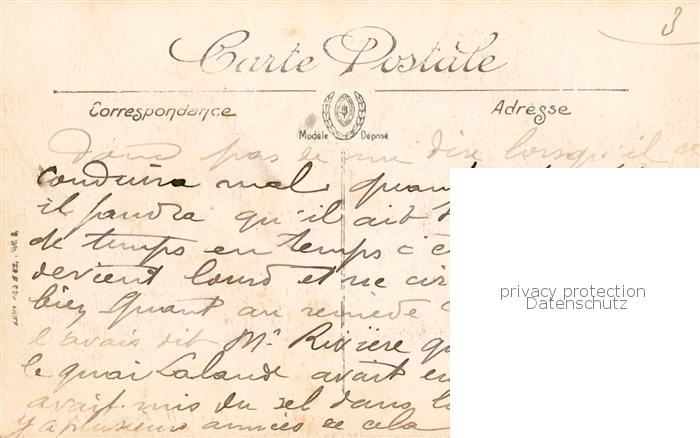 3
Carte Postale
Correspondance
Adresse
Modèle Déposé
pas le me dire lorsqu'il se
conduira mal, quan
il faudra qu'il ait
de temps en temps c'e
devient lourd et ne cir
bien Quant au remède
l'avais dit Mr Rivière qu
le quai Lalande avait en
avait mis du sel dans l
y a plusieurs années de cela
privacy protection
Datenschutz